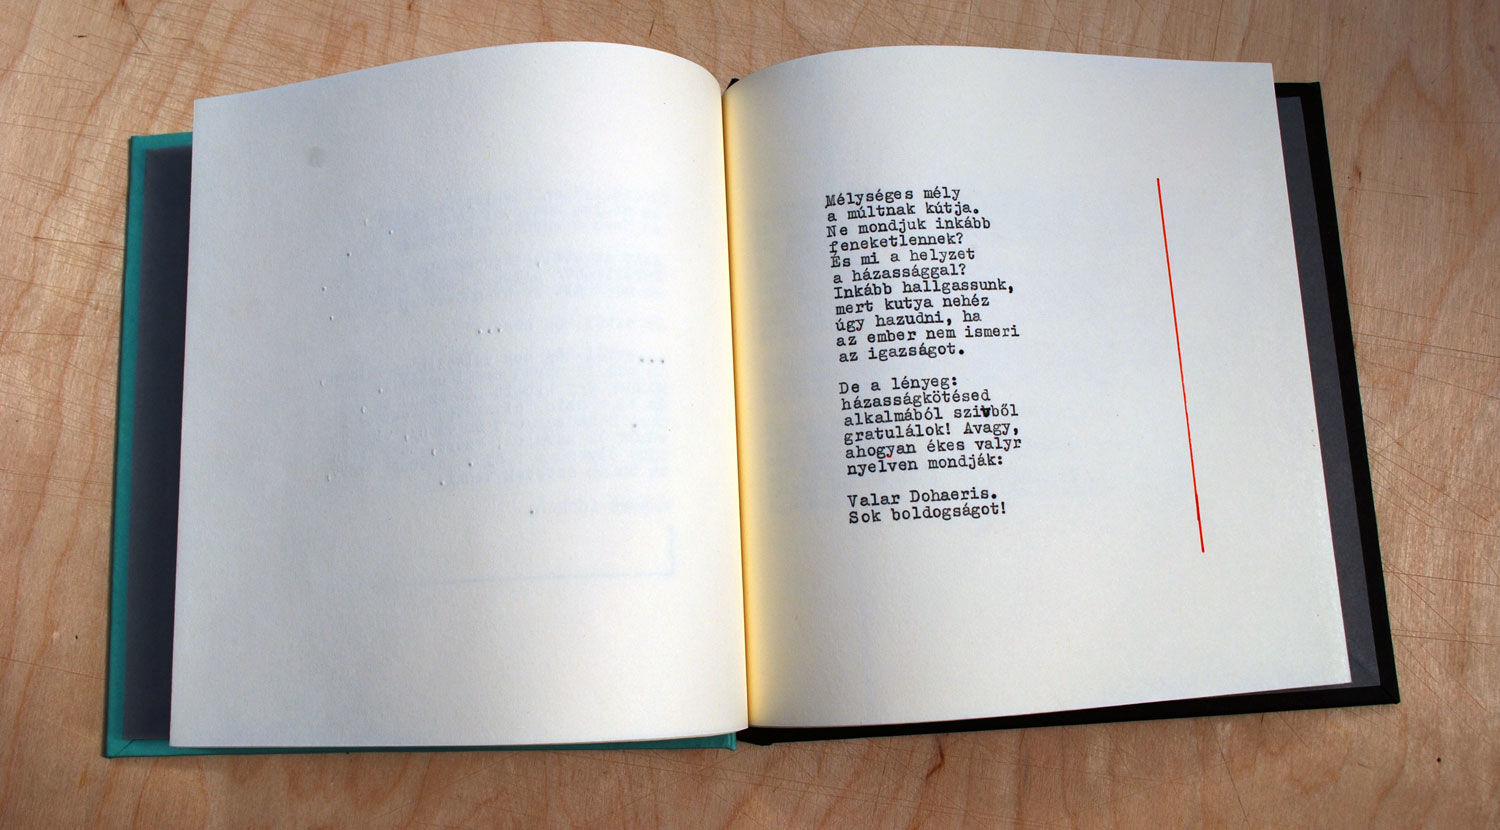 Mélységes mély
a múltnak kútja.
Ne mondjuk inkább
feneketlennek?
És mi a helyzet
a házassággal?
Inkább hallgassunk,
mert kutya nehéz
úgy hazudni, ha
az ember nem ismeri
az igazságot.
De a lényeg:
házasságkötésed
alkalmából szivből
gratulálok! Avagy,
ahogyan ékes valyr
nyelven mondják:
Valar Dohaeris.
Sok boldogságot!